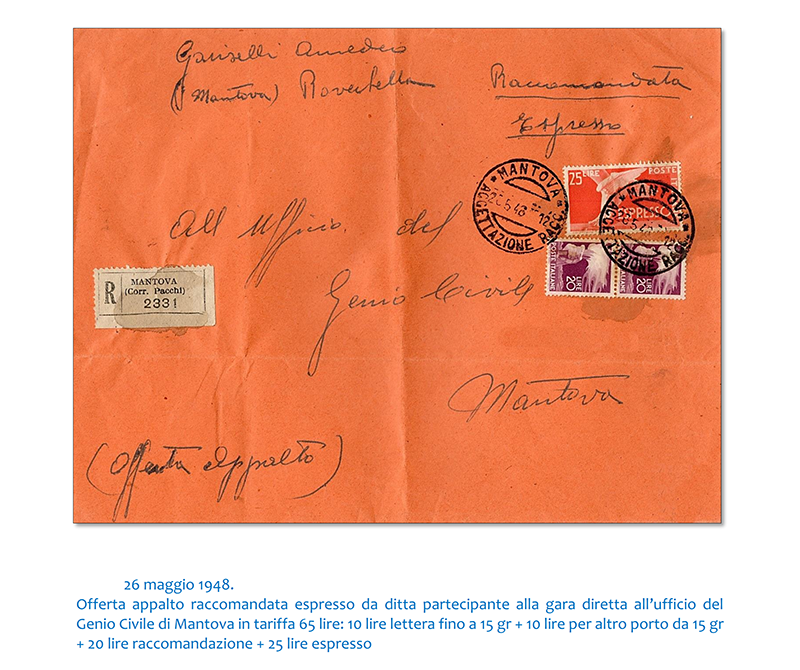 Amedeo
(Mantova)
Raccomandata
Espresso
MANTOVA
26.5.48
ACCETTAZIONE RACC.
25 LIRE POSTE
ESPRESSO
MANTOVA
ACCETTAZIONE RACC.
POSTE ITALIANE LIRE 20
LIRE 20
All Ufficio del
R
MANTOVA
(Corr. Pacchi)
2331
Genio Civile
Mantova
(Offerta Appalto)
26 maggio 1948.
Offerta appalto raccomandata espresso da ditta partecipante alla gara diretta all’ufficio del
Genio Civile di Mantova in tariffa 65 lire: 10 lire lettera fino a 15 gr + 10 lire per altro porto da 15 gr
+ 20 lire raccomandazione + 25 lire espresso